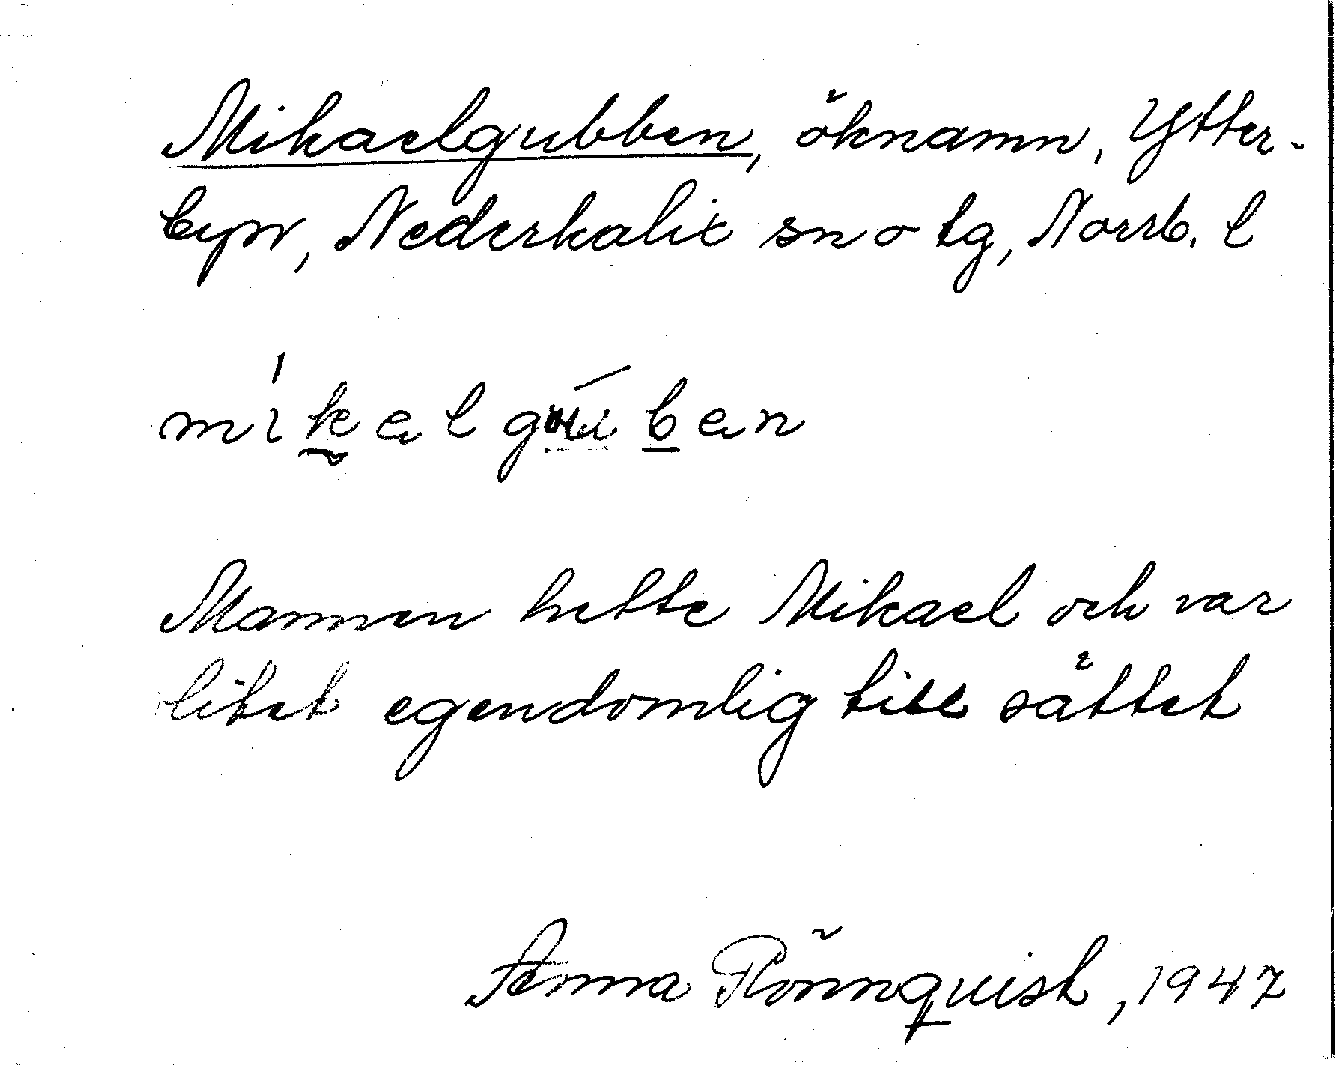 Mikaelgubben, öknamn, Ytter-
byn, Nederkalix sn o tg, Norrb. l
mikalguben
Mannen hette Mikael och var
litet egendomlig till sättet
Anna Rönnquist, 1947